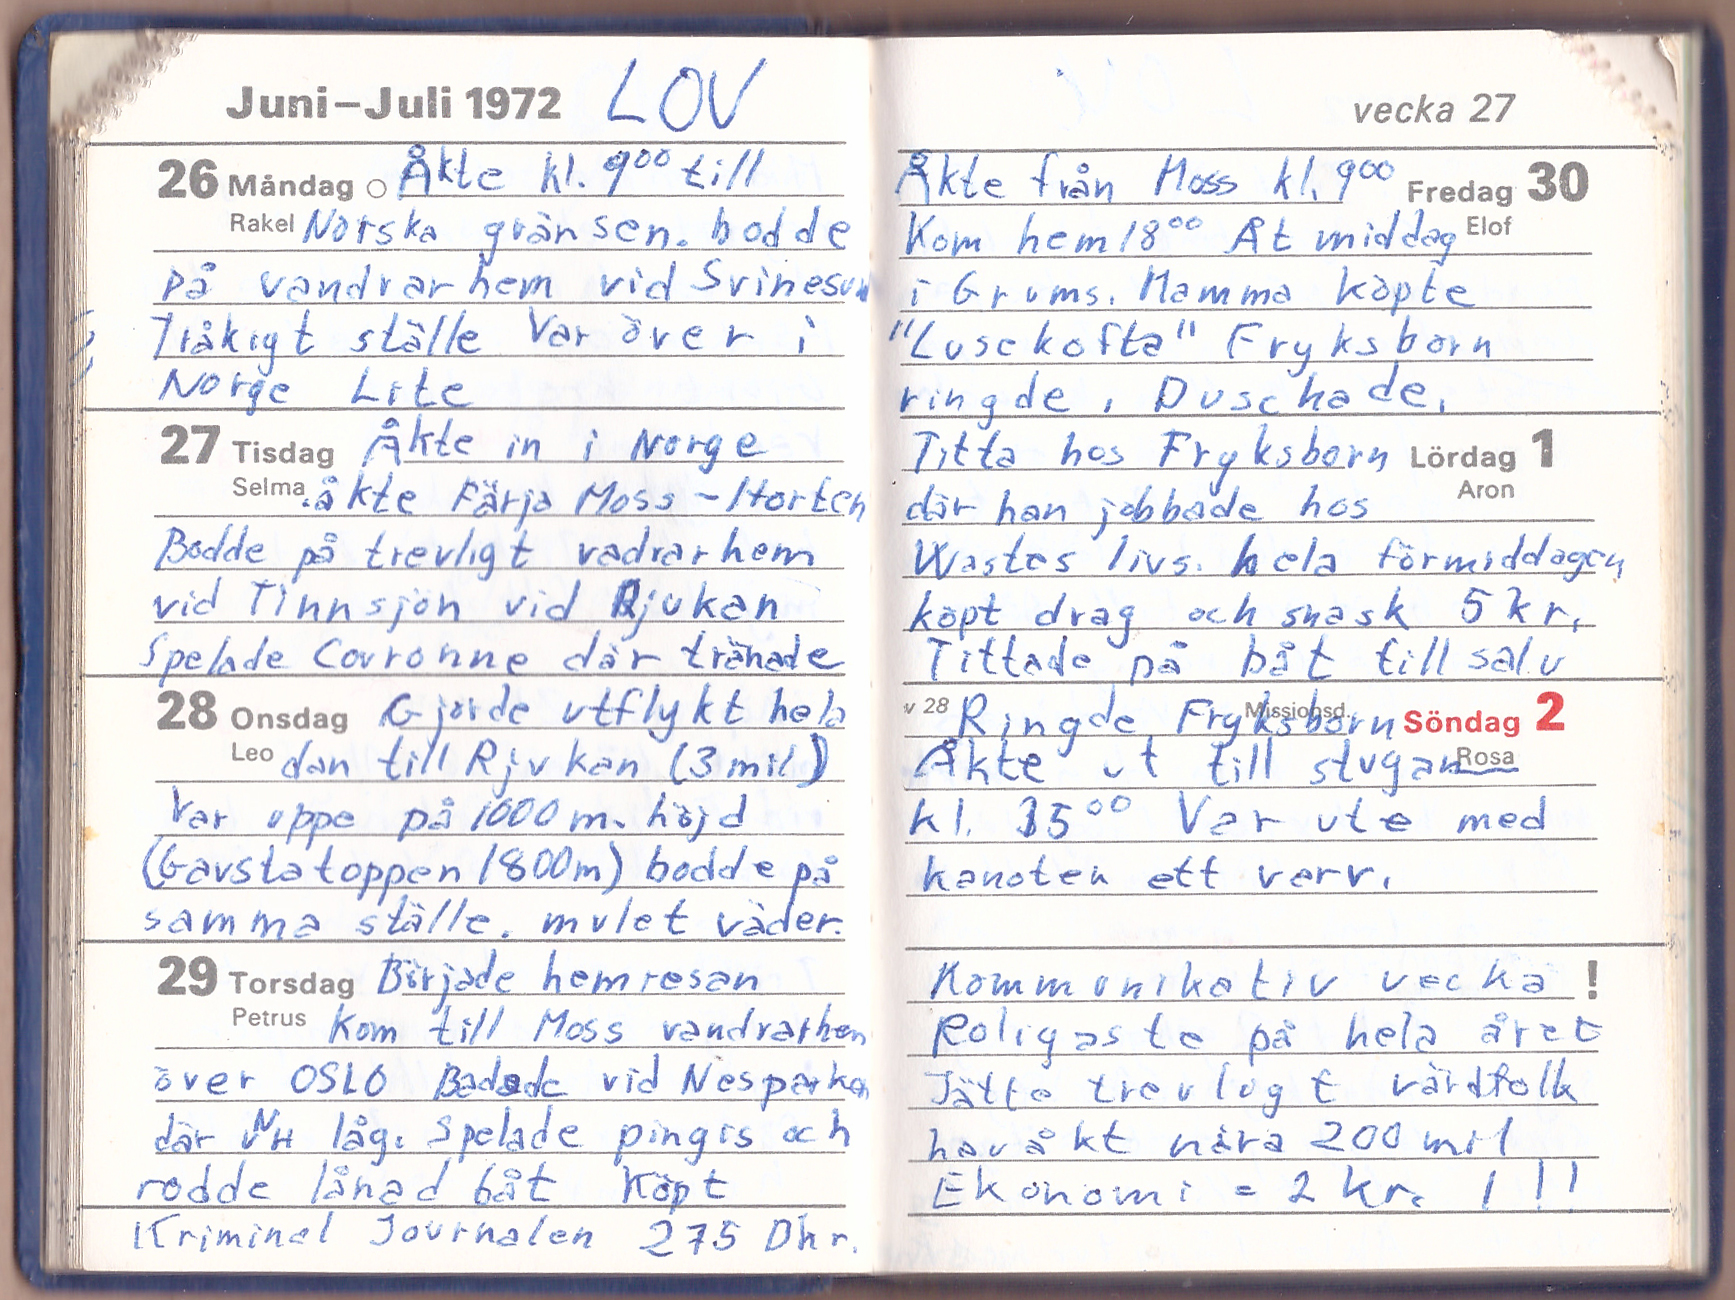 Juni–Juli 1972 LOV
26 Måndag Åkte kl. 9⁰⁰ till
Rakel Norska gränsen. bodde
på vandrarhem vid Svinesun
Tråkigt ställe Var över i
Norge Lite
27 Tisdag Åkte in i Norge
Selma åkte Färja Moss – Horten
Bodde på trevligt vadrarhem
vid Tinnsjön vid Rjukan
Spelade Couronne där tränade
28 Onsdag Gjorde utflykt hela
Leo dan till Rjukan (3 mil)
Var uppe på 1000 m. höjd
(Gavstatoppen 1800m) bodde på
samma ställe. mulet väder.
29 Torsdag Började hemresan
Petrus Kom till Moss vandrarhem
över OSLO Badade vid Nesparken
där NH låg. Spelade pingis och
rodde lånad båt Köpt
Kriminal Journalen 275 Dkr.
vecka 27
Åkte från Moss kl. 9⁰⁰ Fredag 30
Kom hem 18⁰⁰ Åt middag Elof
i Grums. Mamma köpte
"Lusekofta" Fryksborn
ringde, Duschade.
Titta hos Fryksborn Lördag 1
där han jobbade hos Aron
Wastes livs. hela förmiddagen
köpt drag och snask 5 kr.
Tittade på båt till salu
v 28 Ringde Fryksborn Missionsd. Söndag 2
Åkte ut till stugan Rosa
kl. 15⁰⁰ Var ute med
kanoten ett varv.
Kommunikativ vecka !
Roligaste på hela året
Jätte trevligt värdfolk
har åkt nära 200 mil
Ekonomi = 2 kr. !!!